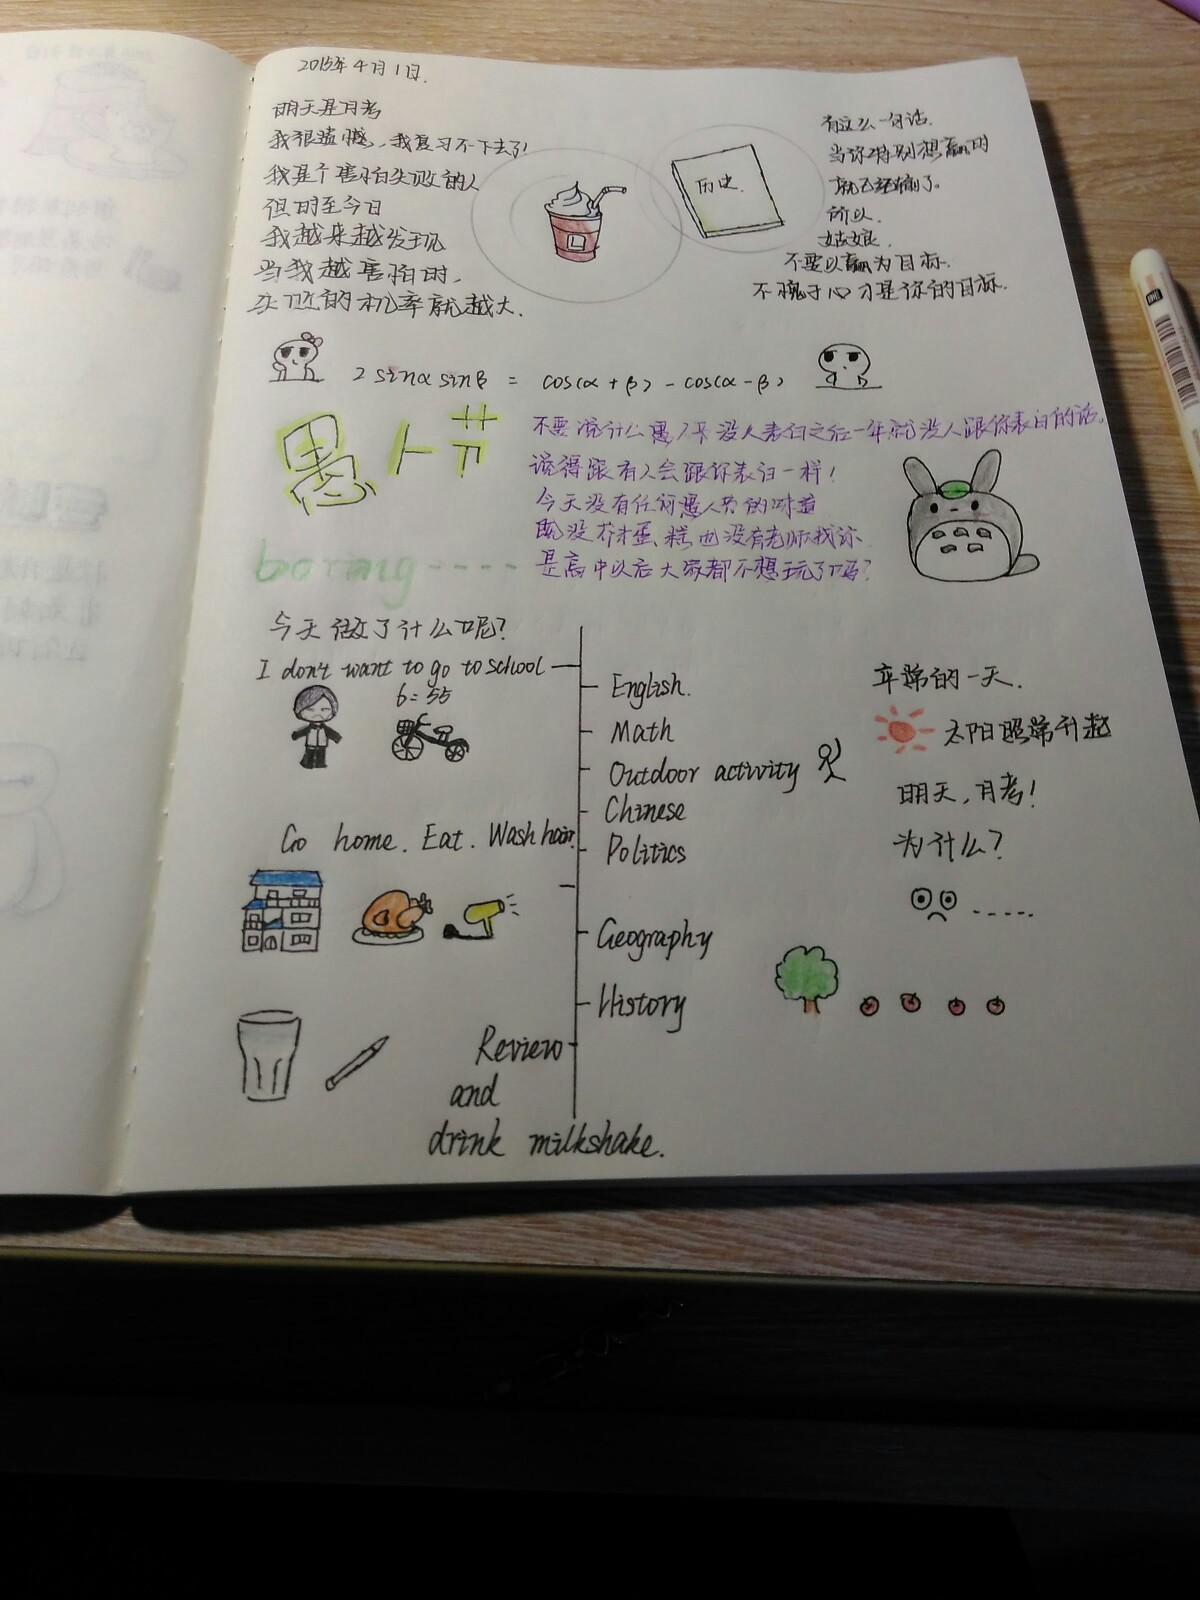 2015年4月1日.
明天是月考
我很遗憾，我复习不下去了！
我是个害怕失败的人
但时至今日
我越来越发现
当我越害怕时，
失败的机率就越大.
历史.
有这么一句话.
当你特别想赢时
就已经输了。
所以.
姑娘.
不要以赢为目标.
不愧于心才是你的目标.
2 sinα sinβ = cos(α+β) - cos(α-β)
愚人节
不要说什么愚人节没人表白之后一年就没人跟你表白的话,
说得跟有人会跟你表白一样！
今天没有任何愚人节的味道
既没芥末蛋糕也没有老师找你
是高中以后大家都不想玩了吗？
boring-----
今天做了什么呢？
I don't want to go to school
6=55
English.
Math
Outdoor activity
Chinese
Politics
Go home. Eat. Wash hair.
Geography
History
Review
and
drink milkshake.
平常的一天.
太阳照常升起
明天，月考！
为什么？